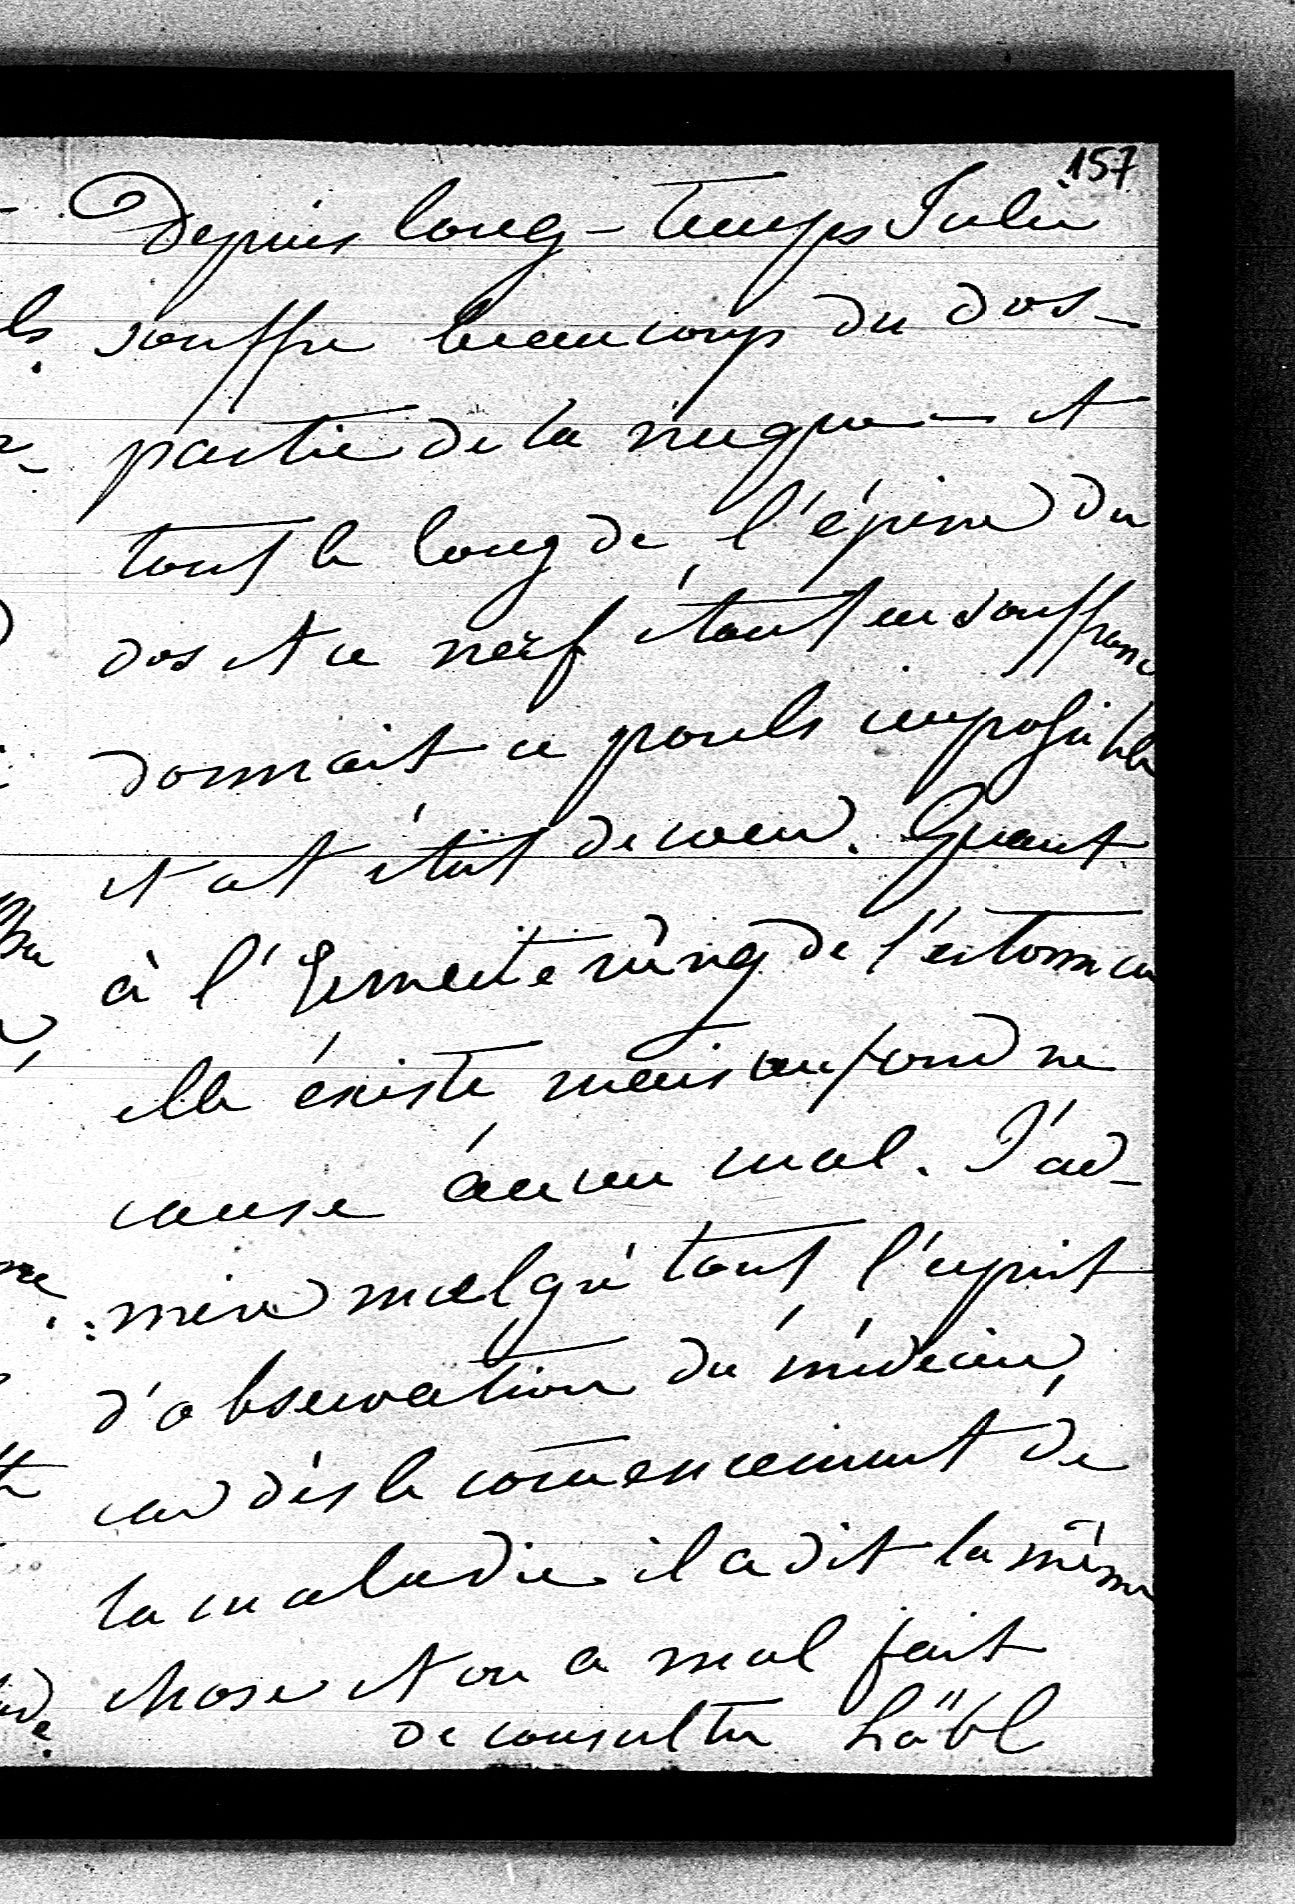 157
Depuis long-temps Julie
souffre beaucoup du dos-
partie de la nuque - et
tout le long de l'épine du
dos et ce nerf étant en souffranc
donnait ce pouls impossible
et cet état de coeur. Quant
à l' de l'estomac
elle éxiste mais au fond ne
cause aucun mal. J'ad-
mire malgré tout l'esprit
d'observation du médecin,
car dès le comencement de
la maladie il a dit la même
chose et on a mal fait
de consulter